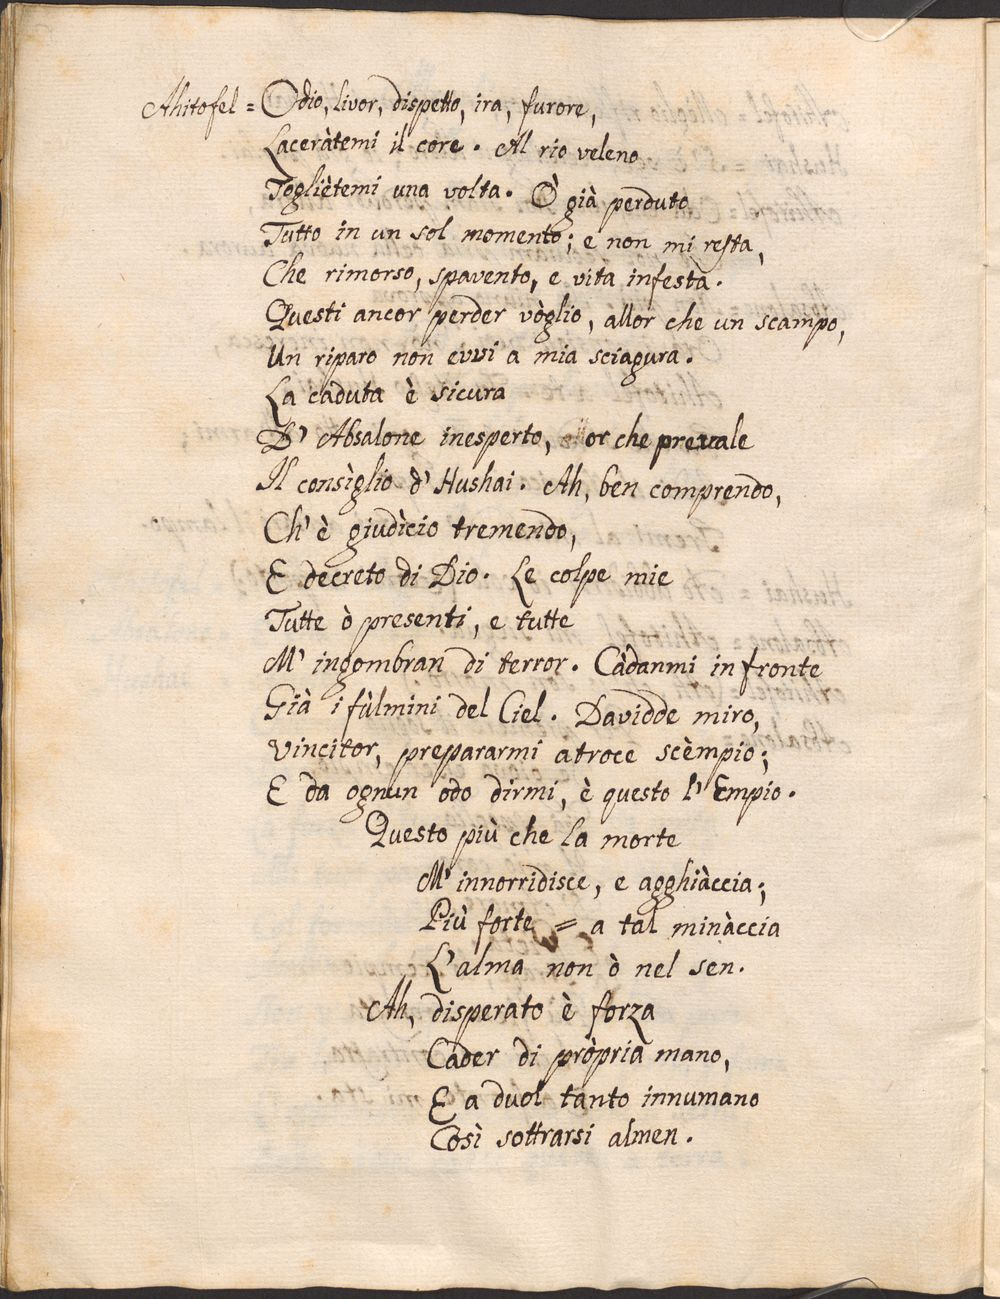 Ahitofel = Odio, livor, dispetto, ira, furore,
Laceràtemi il core. Al rio veleno
Togliètemi una volta. Ò già perduto
Tutto in un sol momento; e non mi resta,
Che rimorso, spavento, e vita infesta.
Questi ancor perder vòglio, allor che un scampo,
Un riparo non evvi a mia sciagura.
La caduta è sicura
D' Absalone inesperto, or che prevale
Il consìglio d' Hushai. Ah, ben comprendo,
Ch' è giudìcio tremendo,
E decreto di Dio. Le colpe mie
Tutte ò presenti, e tutte
M' ingombran di terror. Càdanmi in fronte
Già i fùlmini del Ciel. Davidde miro,
Vincitor, prepararmi atroce scèmpio;
E da ognun odo dirmi, è questo l' Empio.
Questo più che la morte
M' innorridisce, e agghiàccia;
Più forte = a tal minàccia
L' alma non ò nel sen.
Ah, disperato è forza
Càder di pròpria mano,
E a duol tanto innumano
Così sottrarsi almen.